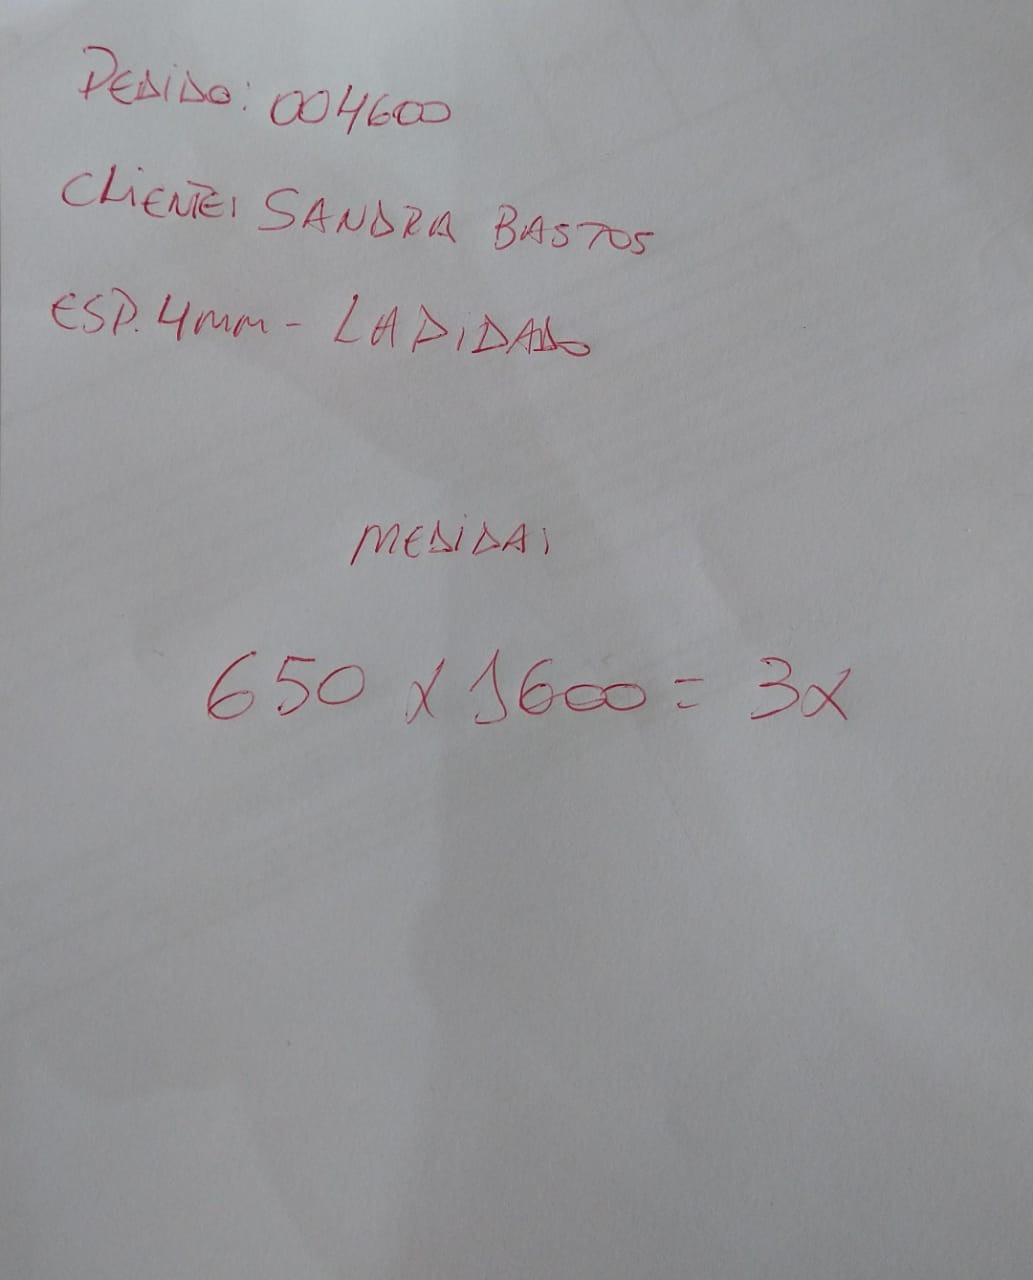 PEDIDO: 004600
CLIENTE: SANDRA BASTOS
ESP. 4mm - LAPIDADO
MEDIDA:
650 x 1600 = 3x